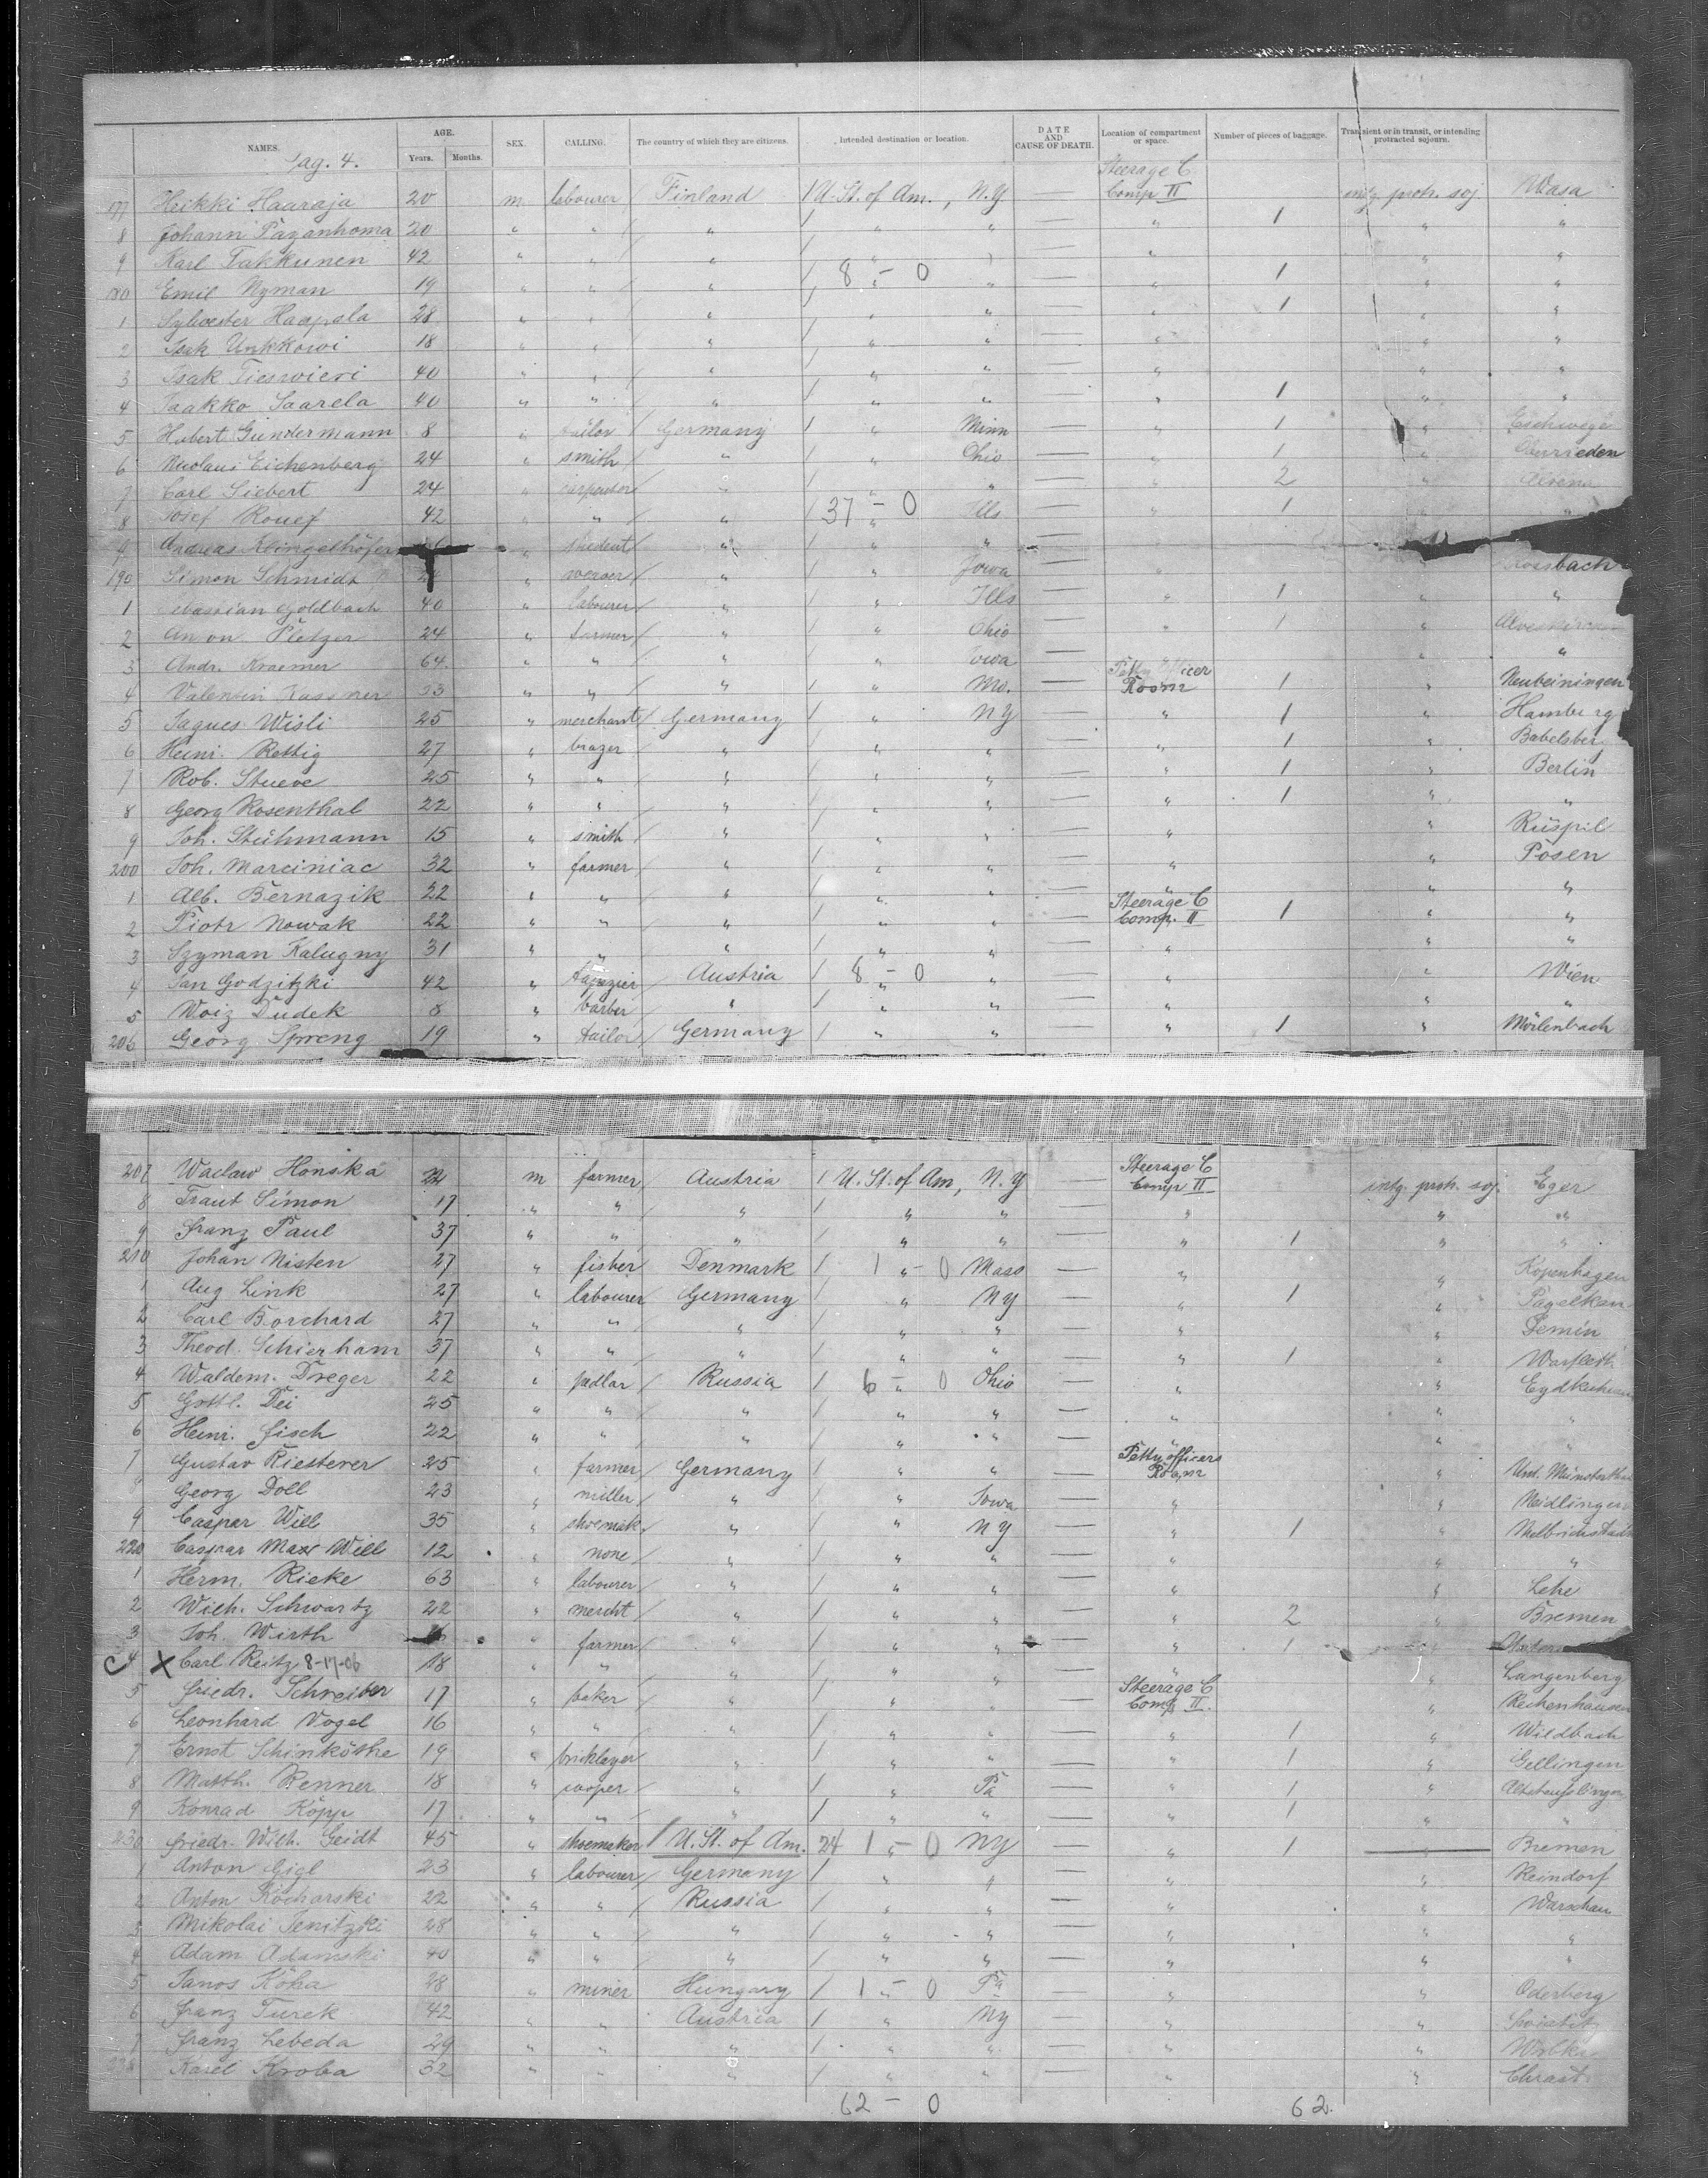 NAMES. AGE. Years. Months. SEX. CALLING. The country of which they are citizens. Intended destination or location. DATE AND CAUSE OF DEATH. Location of compartment or space. Number of pieces of baggage. Transient or in transit, or intending protracted sojourn.
Pag. 4.
177 Heikki Haaraja 20 m labourer Finland 1 U. St. of Am., N.Y — Steerage C Comp II intg. proh. soj. Wasa
8 Johann Pazanhoma 20 " " " 1 " " — " 1 " "
9 Karl Takkunen 42 " " " 1 " " — " " "
180 Emil Nyman 19 " " " 1 8 - 0 " — " 1 " "
1 Sylvester Haapala 28 " " " 1 " " — " 1 " "
2 Isak Unkkowi 18 " " " 1 " " — " " "
3 Isak Tieswieri 40 " " " 1 " " — " " "
4 Jaakko Saarela 40 " " " 1 " " — " 1 " "
5 Hubert Gundermann 8 " tailor Germany 1 " Minn — " 1 " Eschwege
6 Nicolaus Eichenberg 24 " smith " 1 " Ohio — " 1 " Oberrieden
7 Carl Siebert 24 " carpenter " 1 " " — " 2 "
8 Josef Rouef 42 " " " 1 37 - 0 Ills — " 1 " "
9 Andreas Klingelhöfer " student " 1 " "
190 Simon Schmidt " weaver " 1 " Iowa — " Rossbach
1 Sebastian Goldbach 40 " labourer " 1 " Ills — " 1 " "
2 Anton Pletzer 24 " farmer " 1 " Ohio — " 1 "
3 Andr. Kraemer 64 " " " 1 " Iowa — " "
4 Valentin Kassner 33 " " " 1 " Mo. — Petty Officer Room 1 " Neubeiningen
5 Jaques Wisli 25 " merchant Germany 1 " NY — " 1 " Hamburg
6 Heinr. Rettig 27 " brazer " 1 " " — " 1 " Babelsberg
7 Rob. Stueve 25 " " " 1 " " — " 1 " Berlin
8 Georg Rosenthal 22 " " " 1 " " — " 1 " "
9 Joh. Stuhmann 15 " smith " 1 " " — " " Rüspil
200 Joh. Marciniac 32 " farmer " 1 " " — " " Posen
1 Alb. Bernazik 22 " " " 1 " " — " " "
2 Piotr Nowak 22 " " " 1 " " — Steerage C Comp. II 1 " "
3 Szyman Kalugny 31 " " " 1 " " — " " "
4 Jan Godzitzki 42 " tapezier Austria 1 8 - 0 " — " " Wien
5 Woiz Dudek 8 " barber " 1 " " — " " "
206 Georg Spreng 19 " tailor Germany 1 " " — " 1 " Mörlenbach
207 Waclaw Honska 24 m farmer Austria 1 U. St. of Am, N.Y — Steerage C Comp II intg. proh. soj. Eger
8 Traut Simon 17 " " " 1 " " — " " "
9 Franz Paul 37 " " " 1 " " — " 1 " "
210 Johan Nisten 27 " fisher Denmark 1 1 - 0 Mass — " Kopenhagen
1 Aug Link 27 " labourer Germany 1 " NY — " 1 "
2 Carl Borchard 27 " " " 1 " " — " " Demin
3 Theod. Schierham 37 " " " 1 " " — " 1 "
4 Waldem. Dreger 22 " pedlar Russia 1 6 - 0 Ohio — " " Eydkuhnen
5 Gottl. Dei 25 " " " 1 " " — " " "
6 Heinr. Fisch 22 " " " 1 " " — " " "
7 Gustav Riesterer 25 " farmer Germany 1 " " — Petty officers Room " Unt. Münsterthal
8 Georg Doll 23 " miller " 1 " Iowa — " " Neidlingen
9 Caspar Will 35 " shoemak. " 1 " NY — " 1 " Melrichstadt
220 Caspar Max Will 12 " none " 1 " " — " " "
1 Herm. Rieke 63 " labourer " 1 " " — " " Lehe
2 Wilh. Schwartz 22 " mercht " 1 " " — " 2 " Bremen
3 Joh. Wirth " farmer " 1 " " — " 1
C4 X Carl Reitz 8-17-06 18 " " " 1 " " — " " Langenberg
5 Friedr. Schreiber 17 " baker " 1 " " — Steerage C Comp II. " Rechenhausen
6 Leonhard Vogel 16 " " " 1 " " — " 1 " Wildbach
7 Ernst Schinköthe 19 " bricklayer " 1 " " — " 1 " Gellingen
8 Matth. Renner 18 " cooper " 1 " Pa — " 1 "
9 Konrad Köpp 17 " " " 1 " " — " 1 " "
230 Friedr. Wilh. Geidt 45 " shoemaker U. St. of Am. 24 1 - 0 NY — " 1 " Bremen
1 Anton Gigl 23 " labourer Germany 1 " " — " " Reindorf
2 Anton Kocharski 22 " " Russia 1 " " — " " Warschau
3 Mikolai Jenitzki 28 " " " 1 " " — " " "
4 Adam Adamski 40 " " " 1 " " — " " "
5 Janos Koha 28 " miner Hungary 1 1 - 0 Pa — " " Oderberg
6 Franz Turek 42 " " Austria 1 " NY — " "
7 Franz Lebeda 29 " " " 1 " " — " "
238 Karel Kroba 32 " " " 1 " " — " " Chrast
62 - 0 62.